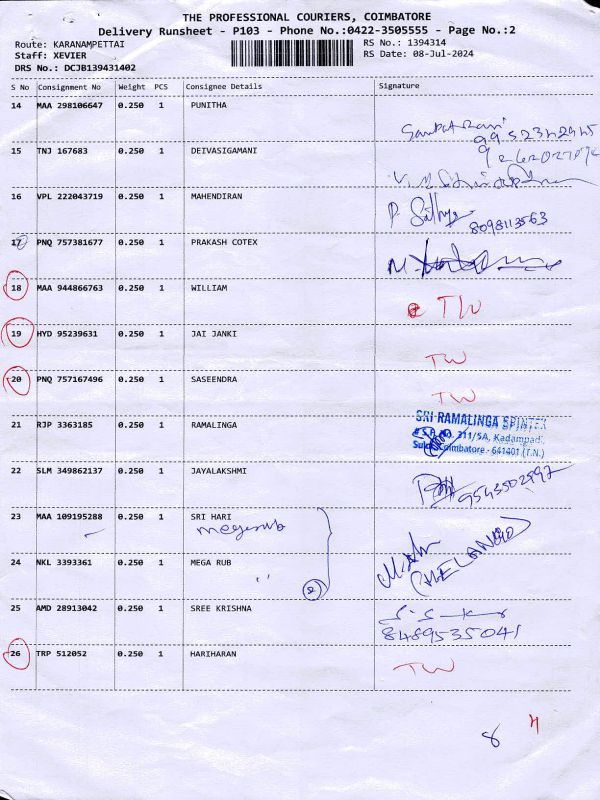 THE PROFESSIONAL COURIERS, COIMBATORE
Delivery Runsheet - P103 - Phone No.:0422-3505555 - Page No.:2
Route: KARANAMPETTAI RS No.: 1394314
Staff: XEVIER RS Date: 08-Jul-2024
DRS No.: DCJB139431402
S No Consignment No Weight PCS Consignee Details Signature
14 MAA 298106647 0.250 1 PUNITHA
15 TNJ 167683 0.250 1 DEIVASIGAMANI
16 VPL 222043719 0.250 1 MAHENDIRAN P. Sathya
8098113563
17 PNQ 757381677 0.250 1 PRAKASH COTEX
18 MAA 944866763 0.250 1 WILLIAM TW
19 HYD 95239631 0.250 1 JAI JANKI TW
20 PNQ 757167496 0.250 1 SASEENDRA TW
21 RJP 3363185 0.250 1 RAMALINGA SRI RAMALINGA SPINTEX
311/5A, Kadampadi,
Coimbatore - 641401 (T.N.)
22 SLM 349862137 0.250 1 JAYALAKSHMI 9543502997
23 MAA 109195288 0.250 1 SRI HARI
megarub
24 NKL 3393361 0.250 1 MEGA RUB
2
25 AMD 28913042 0.250 1 SREE KRISHNA
8489535041
26 TRP 512052 0.250 1 HARIHARAN TW
8 4